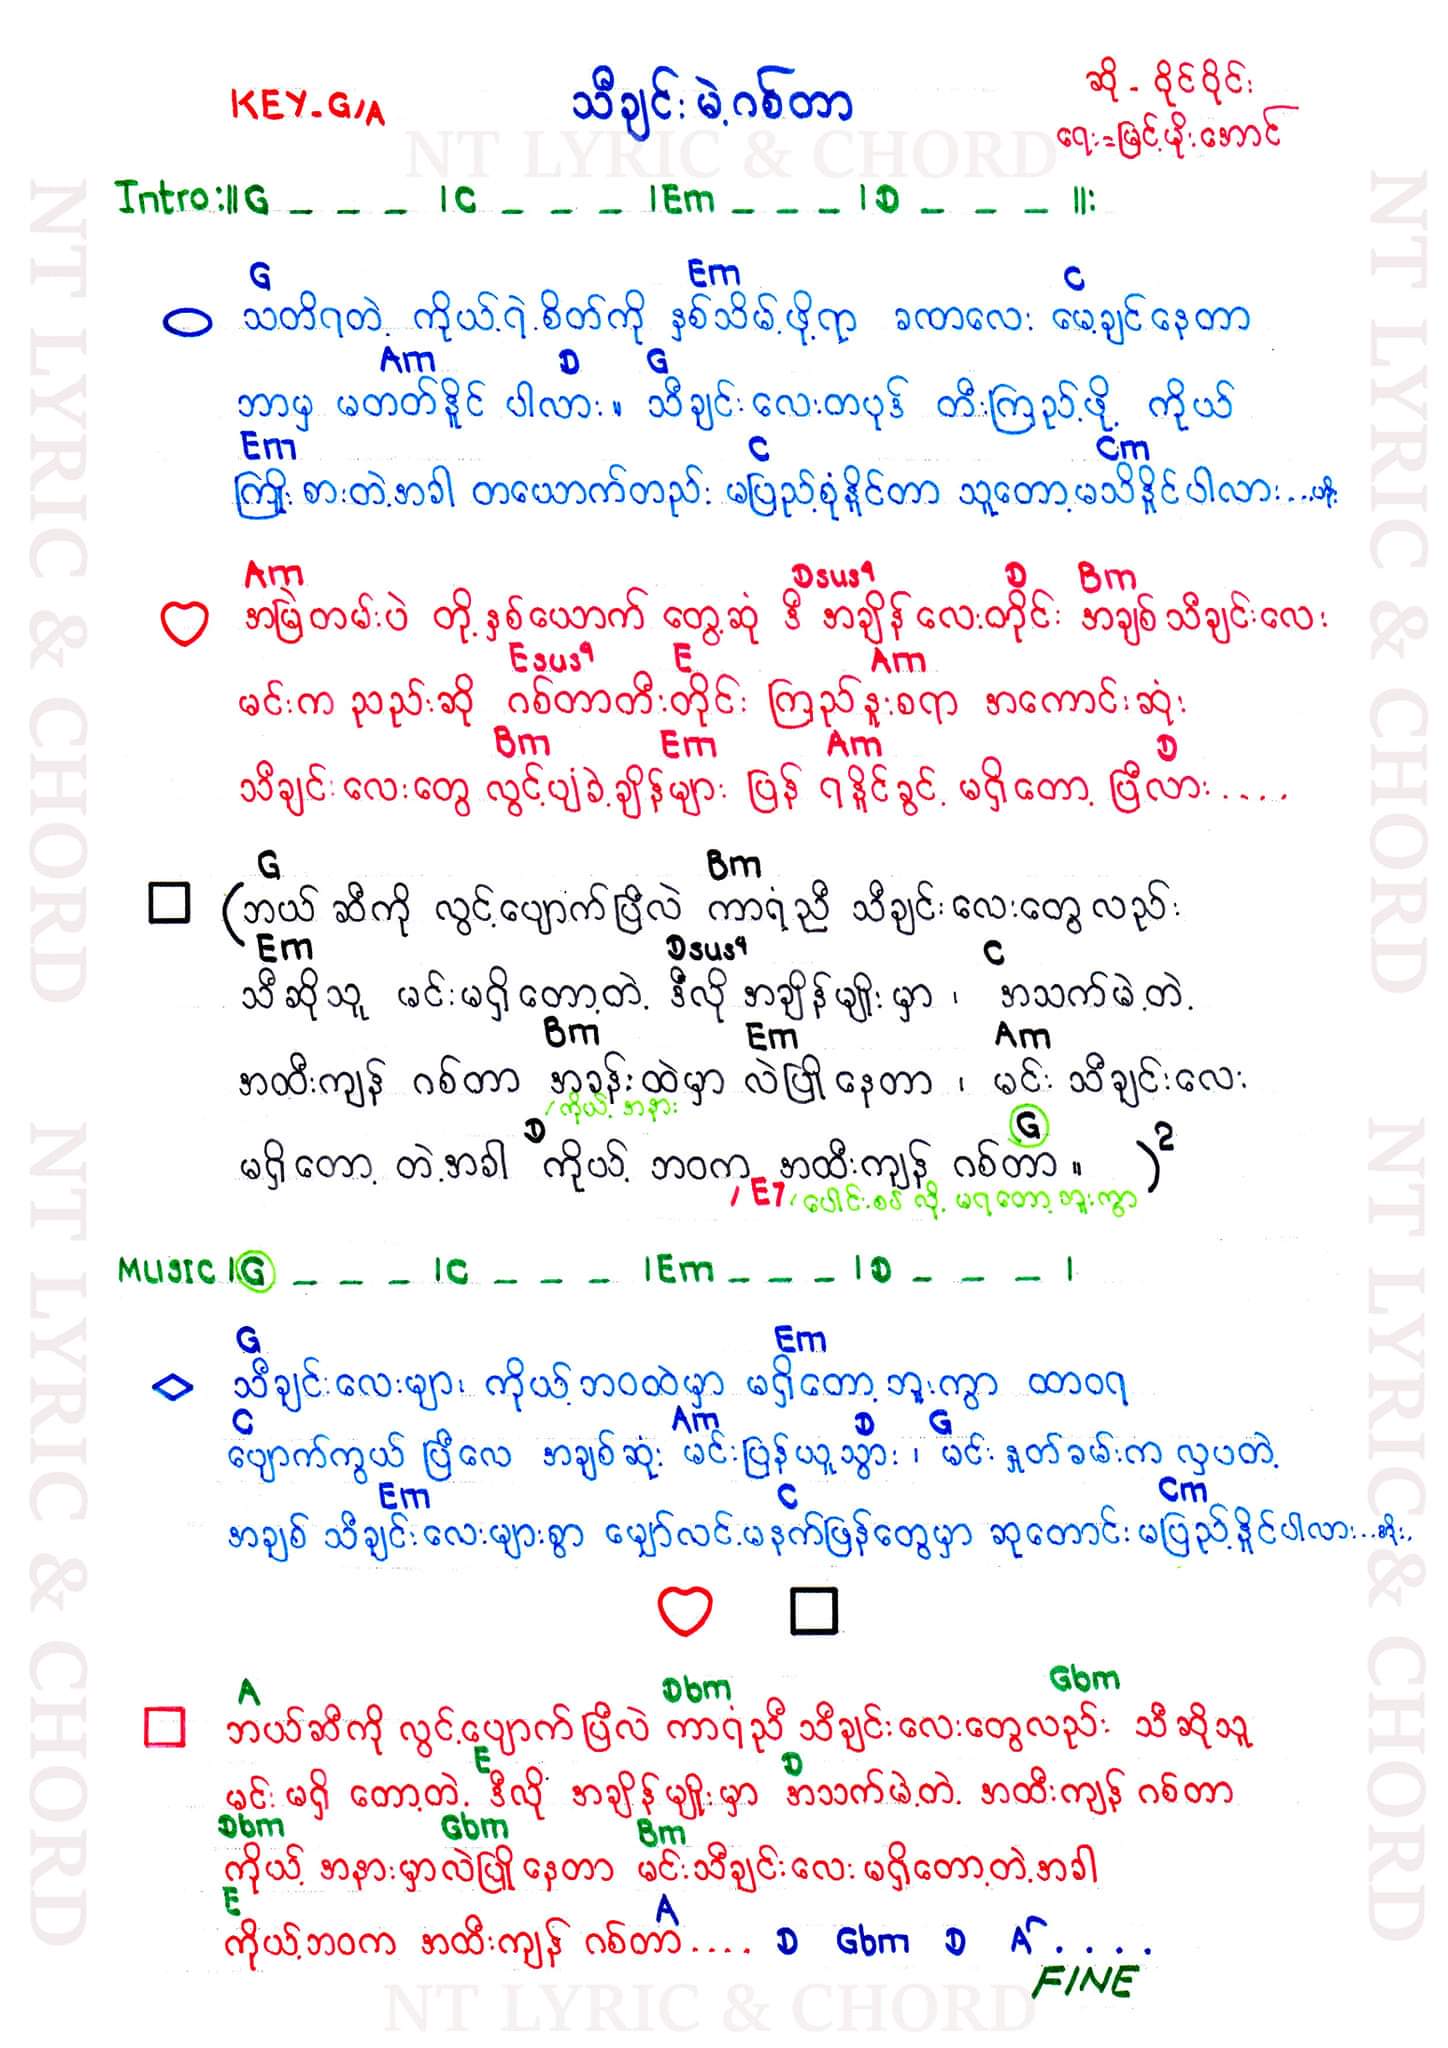 KEY-G/A
သီချင်းမဲ့ဂစ်တာ
ဆို - ဝိုင်ဝိုင်း
ရေး = မြင့်မိုးအောင်
NT LYRIC & CHORD
Intro:||G _ _ _ |C _ _ _ |Em _ _ _ |D _ _ _ ||:
G Em C
သတိရတဲ့ ကိုယ့်ရဲ့စိတ်ကို နှစ်သိမ့်ဖို့ရာ ခဏလေး မေ့ချင်နေတာ
Am D G
ဘာမှ မတတ်နိုင် ပါလား။ သီချင်းလေးတပုဒ် တီးကြည့်ဖို့ ကိုယ်
Em C Cm
ကြိုးစားတဲ့အခါ တယောက်တည်း မပြည့်စုံနိုင်တာ သူတော့မသိနိုင်ပါလား...
Am Dsus4 D Bm
အမြဲတမ်းပဲ တို့နှစ်ယောက် တွေ့ဆုံ ဒီ အချိန်လေးတိုင်း အချစ်သီချင်းလေး
Esus4 E Am
မင်းက ညည်းဆို ဂစ်တာတီးတိုင်း ကြည်နူးစရာ အကောင်းဆုံး
Bm Em Am D
သီချင်းလေးတွေ လွင့်ပျံခဲ့ချိန်များ ပြန် ရနိုင်ခွင့် မရှိတော့ ပြီလား.....
G Bm
(ဘယ်ဆီကို လွင့်ပျောက်ပြီလဲ ကာရံညီ သီချင်းလေးတွေလည်း
Em Dsus4 C
သီဆိုသူ မင်းမရှိတော့တဲ့ ဒီလို အချိန်မျိုးမှာ ၊ အသက်မဲ့တဲ့
Bm Em Am
အထီးကျန် ဂစ်တာ အခန်းထဲမှာ လဲပြိုနေတာ ၊ မင်း သီချင်းလေး
/ကိုယ့်အနား
D G
မရှိတော့ တဲ့အခါ ကိုယ့် ဘဝက အထီးကျန် ဂစ်တာ ။ )2
/ E7 /ပေါင်းစပ်လို့ မရတော့ဘူးကွာ
MUSIC |G _ _ _ |C _ _ _ |Em _ _ _ |D _ _ _ |
G Em
သီချင်းလေးများ ကိုယ့်ဘဝထဲမှာ မရှိတော့ဘူးကွာ ထာဝရ
C Am D G
ပျောက်ကွယ် ပြီလေ အချစ်ဆုံး မင်းပြန်ယူသွား ၊ မင်းနှုတ်ခမ်းက လှပတဲ့
Em C Cm
အချစ် သီချင်းလေးများစွာ မျှော်လင့်မနက်ဖြန်တွေမှာ ဆုတောင်းမပြည့်နိုင်ပါလား...
A Dbm Gbm
ဘယ်ဆီကို လွင့်ပျောက်ပြီလဲ ကာရံညီ သီချင်းလေးတွေလည်း သီဆိုသူ
E D
မင်းမရှိ တော့တဲ့ ဒီလို အချိန်မျိုးမှာ အသက်မဲ့တဲ့ အထီးကျန်ဂစ်တာ
Dbm Gbm Bm
ကိုယ့် အနားမှာလဲပြိုနေတာ မင်းသီချင်းလေးမရှိတော့တဲ့အခါ
E A
ကိုယ့်ဘဝက အထီးကျန် ဂစ်တာ.... D Gbm D A....
FINE
NT LYRIC & CHORD
NT LYRIC & CHORD
NT LYRIC & CHORD
NT LYRIC & CHORD
NT LYRIC & CHORD